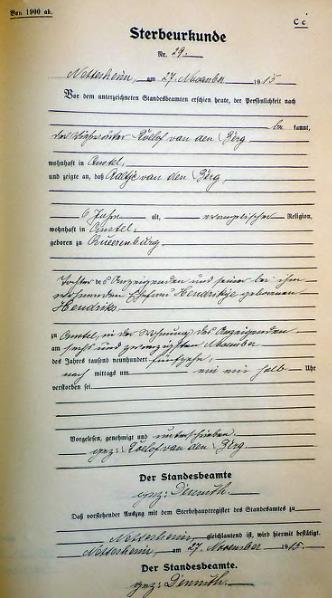 Bau. 1900 ab.
C c
Sterbeurkunde
Nr. 29.
Netterheim, am 27. November 1915
Vor dem unterzeichneten Standesbeamten erschien heute, der Persönlichkeit nach
be kannt,
der Roelof van den Berg
wohnhaft in
und zeigte an, daß van den Berg,
6 Jahre alt, evangelischer Religion,
wohnhaft in
geboren zu
Tochter des Anzeigenden und seiner bei ihm
wohnenden Ehefrau Hendrikje geborenen
Hendriks
zu in der Wohnung des Anzeigenden
am sechs und zwanzigsten November
des Jahres tausend neunhundert fünfzehn
nach mittags um ein ein halb Uhr
verstorben sei.
Vorgelesen, genehmigt und unterschrieben
gez: Roelof van den Berg.
Der Standesbeamte
gez:
Daß vorstehender Auszug mit dem Sterbehauptregister des Standesamts zu
Netterheim, gleichlautend ist, wird hiermit bestätigt.
Netterheim, am 27. November 1915.
Der Standesbeamte.
gez: